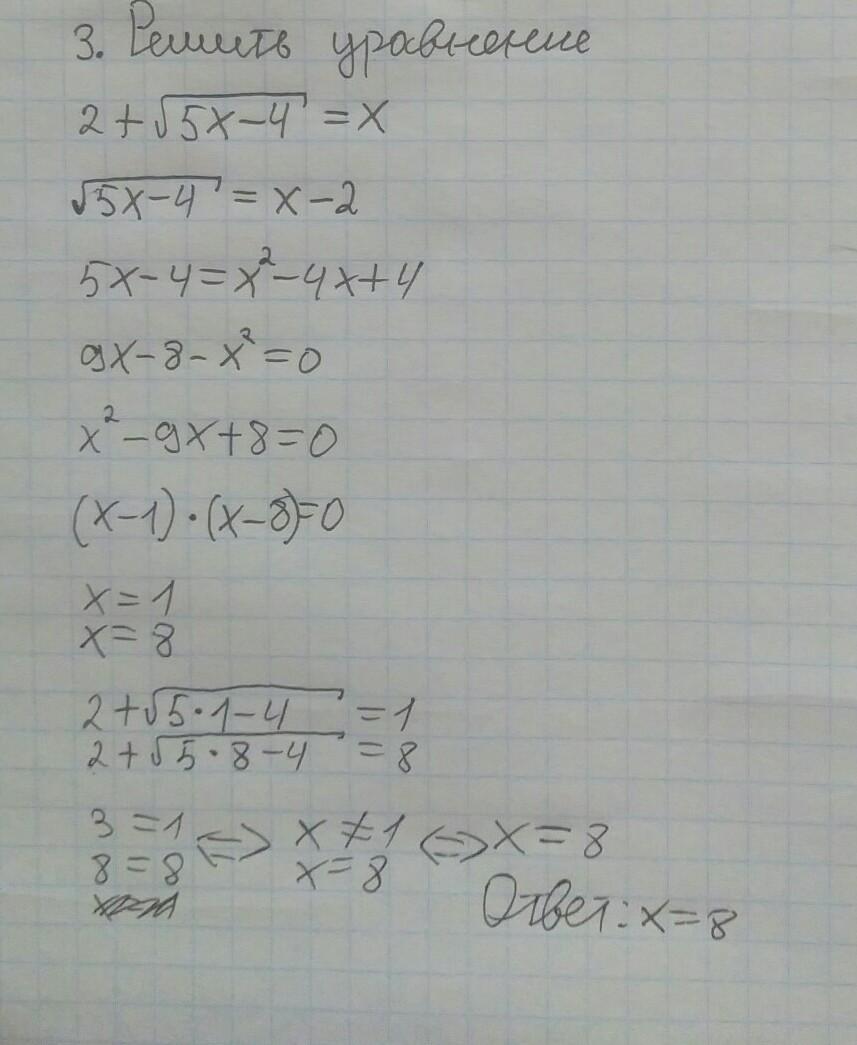 3. Решить уравнение
2+√5x-4 = x
√5x-4 = x-2
5x-4=x²-4x+4
9x-8-x²=0
x²-9x+8=0
(x-1)·(x-8)=0
x=1
x=8
2+√5·1-4 =1
2+√5·8-4 =8
3=1 ⇔ x≠1 ⇔ x=8
8=8 x=8
Ответ: x=8